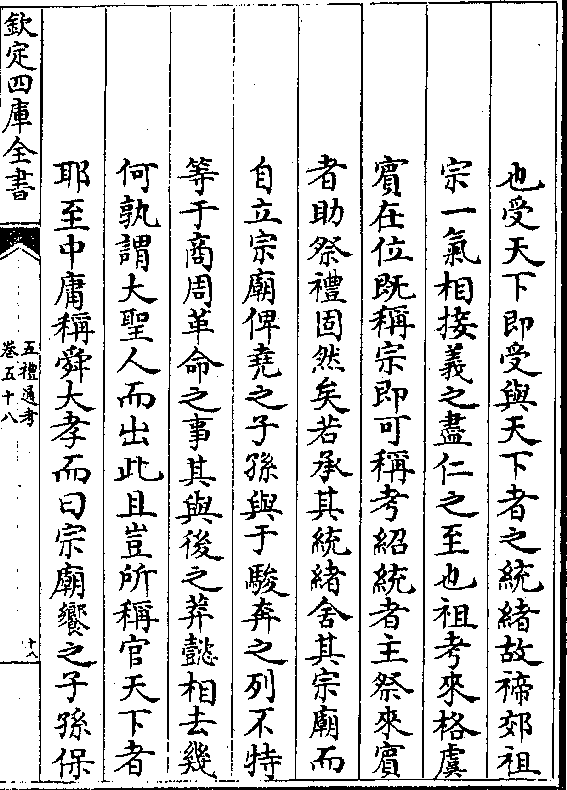 也受天下即受與天下者之統緒故禘郊祖
宗一氣相接義之盡仁之至也祖考來格虞
賓在位既稱宗即可稱考紹統者主祭來賓
者助祭禮固然矣若承其統緒舍其宗廟而
自立宗廟俾堯之子孫與于駿奔之列不特
等于商周革命之事其與後之莽懿相去幾
何孰謂大聖人而出此且豈所稱官天下者
耶至中庸稱舜大孝而曰宗廟饗之子孫保
欽定四庫全書
五禮通考
卷五十八
十八